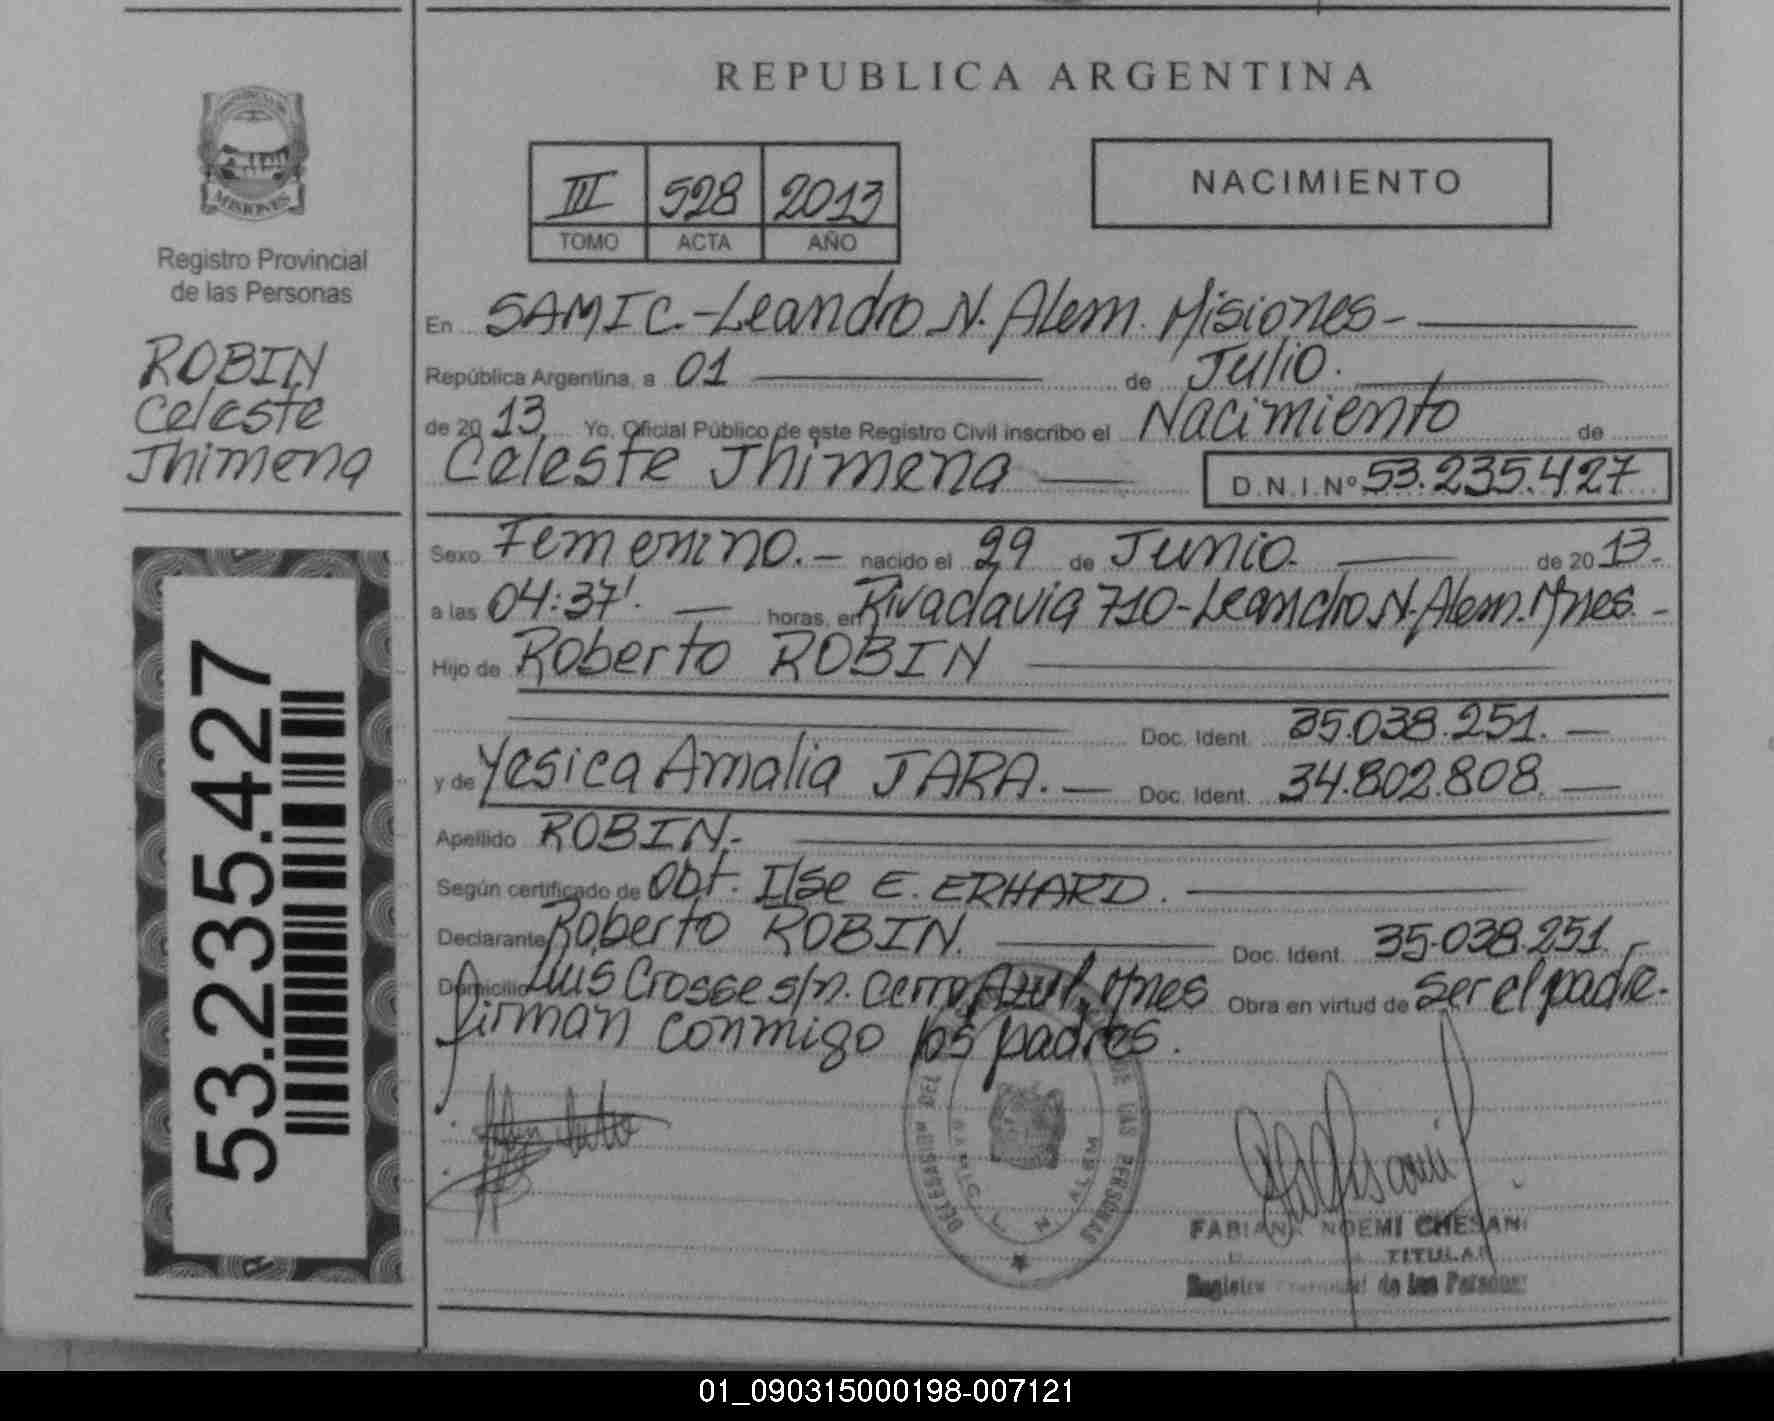 REPUBLICA ARGENTINA
MISIONES
Registro Provincial
de las Personas
ROBIN
Celeste
Jhimena
53.235.427
III 528 2013
TOMO ACTA AÑO
NACIMIENTO
En SAMIC.-Leandro N. Alem. Misiones-
República Argentina, a 01 de Julio.
de 2013 Yo, Oficial Público de este Registro Civil inscribo el Nacimiento de
Celeste Jhimena D.N.I.Nº 53.235.427
Sexo Femenino.- nacido el 29 de Junio. de 2013.
a las 04:37'. horas, en Rivadavia 710-Leandro N. Alem. Mnes.-
Hijo de Roberto ROBIN
Doc. Ident. 35.038.251.-
y de Yesica Amalia JARA.- Doc. Ident. 34.802.808.-
Apellido ROBIN.-
Según certificado de Obt. Ilse E. ERHARD.
Declarante Roberto ROBIN. Doc. Ident. 35.038.251.
Domicilio Luis Crosse s/n. Cerro Azul, Mnes Obra en virtud de ser el padre.
firman conmigo los padres.
DE LAS PERSONAS
DELEGACION
SAMIC L. N. ALEM
FABIANA NOEMI CHESANI
TITULAR
Registro Provincial de las Personas
01_090315000198-007121